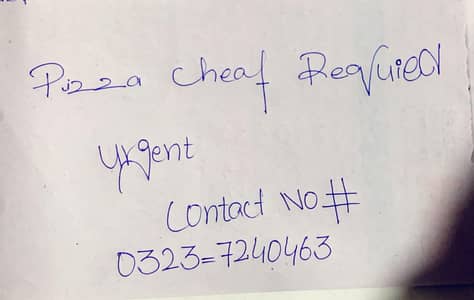 Pizza Cheaf Required
Urgent
Contact No #
0323=7240463